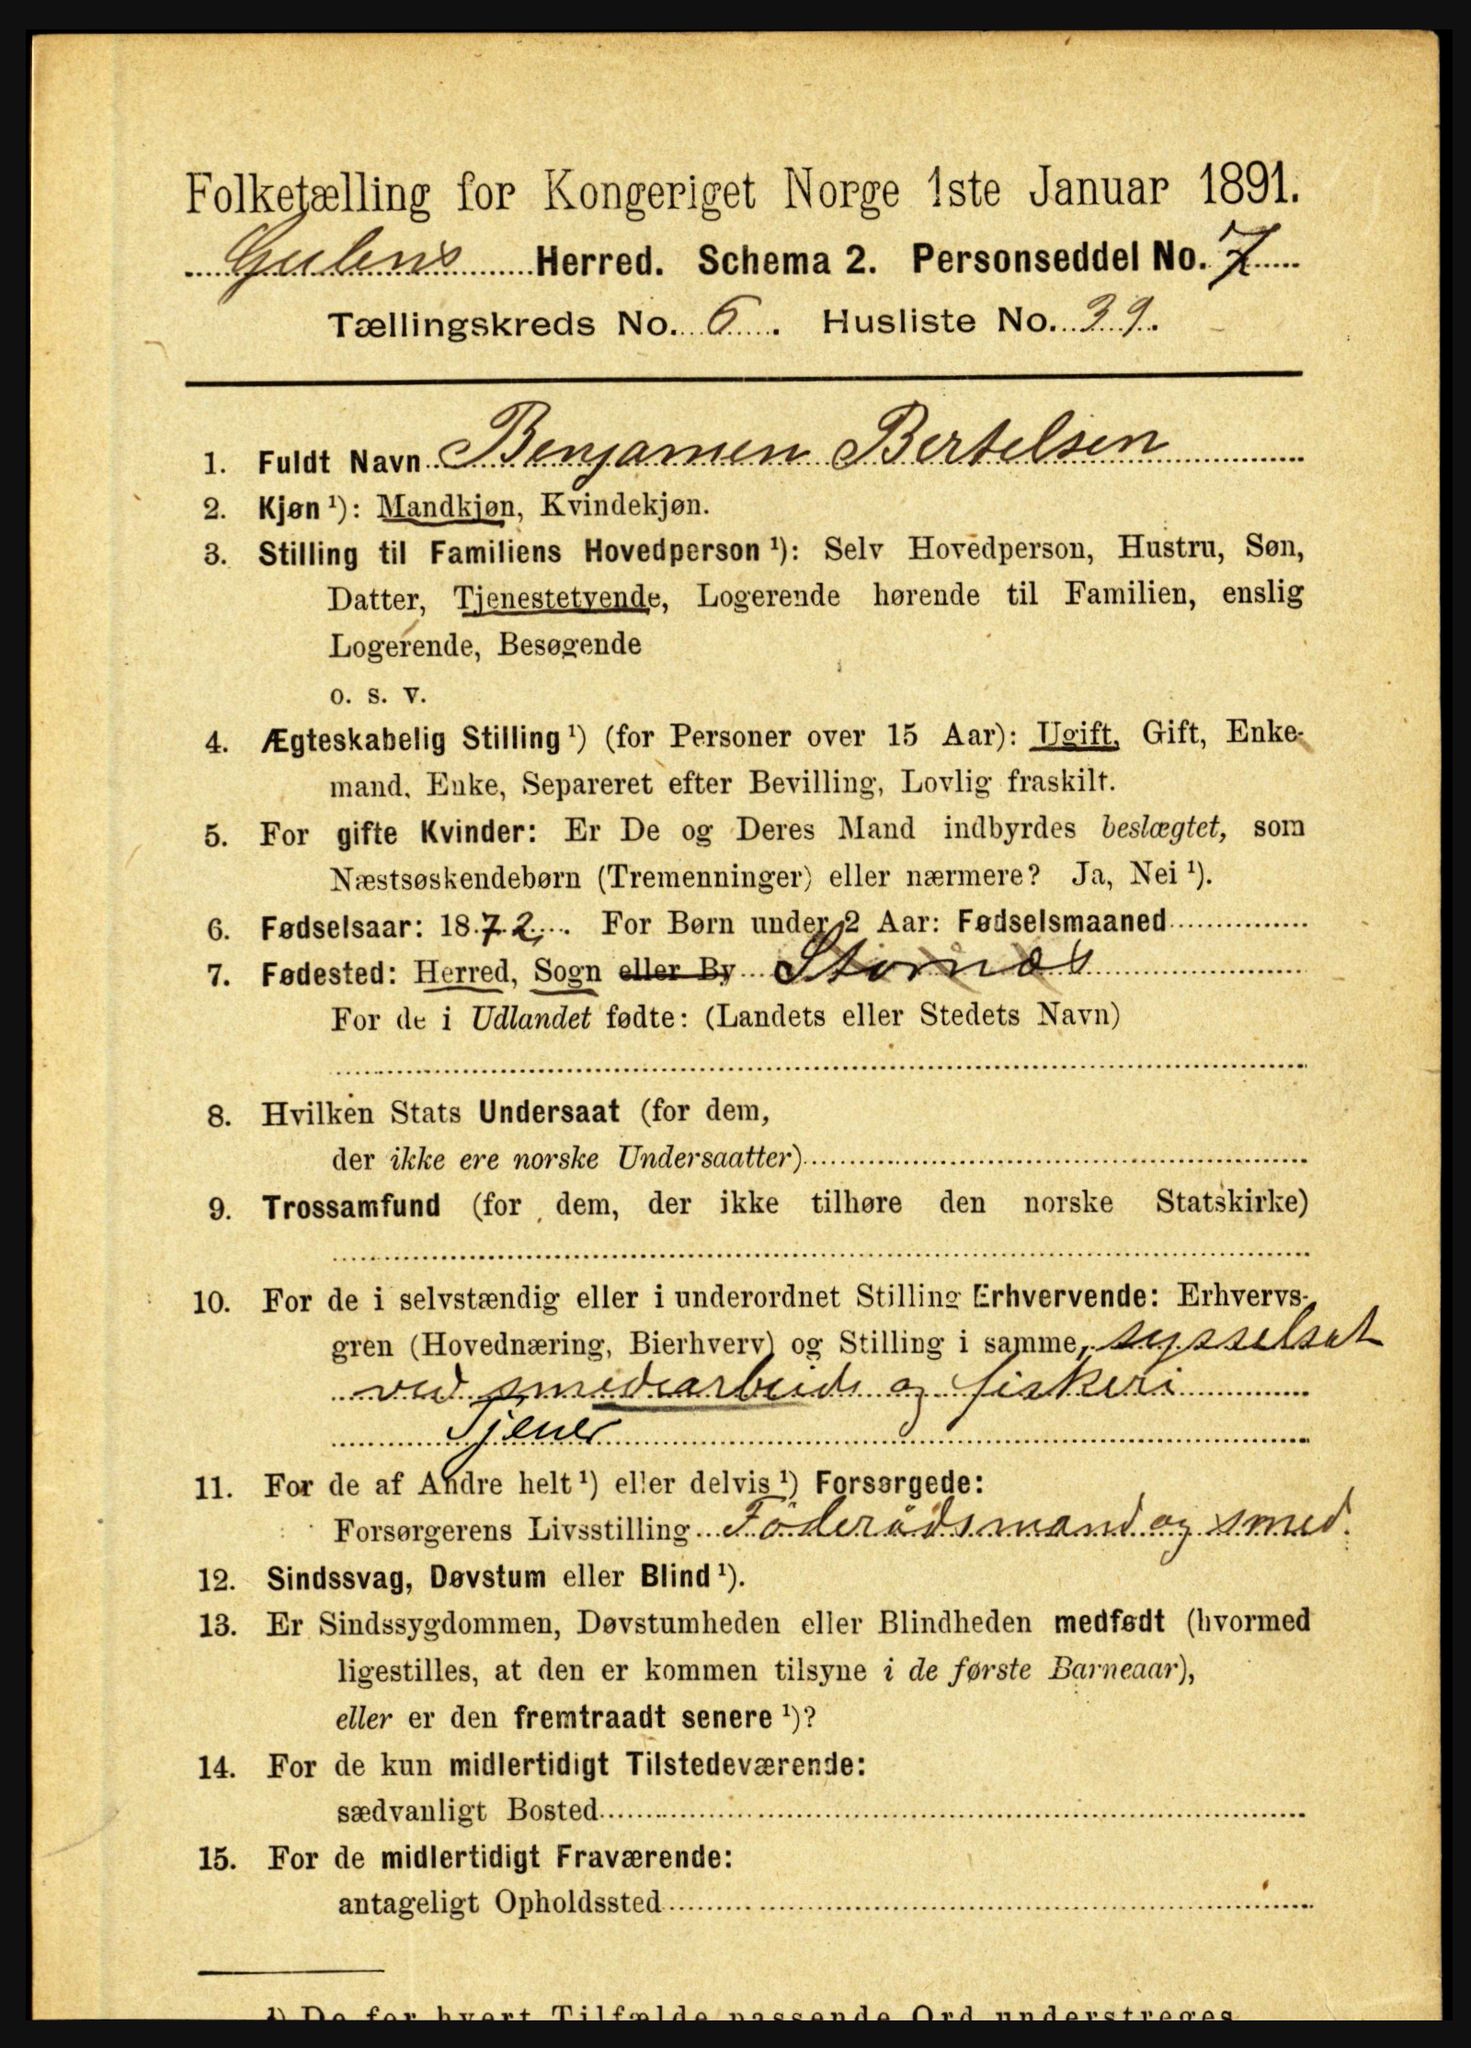 Folketælling for Kongeriget Norge 1ste Januar 1891.
Gulens Herred. Schema 2. Personseddel No. 7
Tællingskreds No. 6. Husliste No. 39.
1. Fuldt Navn Benjamen Bertelsen
2. Kjøn ¹): Mandkjøn, Kvindekjøn.
3. Stilling til Familiens Hovedperson ¹): Selv Hovedperson, Hustru, Søn,
Datter, Tjenestetyende, Logerende hørende til Familien, enslig
Logerende, Besøgende
o. s. v.
4. Ægteskabelig Stilling ¹) (for Personer over 15 Aar): Ugift, Gift, Enke-
mand, Enke, Separeret efter Bevilling, Lovlig fraskilt.
5. For gifte Kvinder: Er De og Deres Mand indbyrdes beslægtet, som
Næstsøskendebørn (Tremenninger) eller nærmere? Ja, Nei ¹).
6. Fødselsaar: 1872. For Børn under 2 Aar: Fødselsmaaned
7. Fødested: Herred, Sogn eller By Stornæs
For de i Udlandet fødte: (Landets eller Stedets Navn)
8. Hvilken Stats Undersaat (for dem,
der ikke ere norske Undersaatter)
9. Trossamfund (for dem, der ikke tilhøre den norske Statskirke)
10. For de i selvstændig eller i underordnet Stilling Erhvervende: Erhvervs-
gren (Hovednæring, Bierhverv) og Stilling i samme, sysselsat
ved smedearbeide og fiskeri
Tjener
11. For de af Andre helt ¹) eller delvis ¹) Forsørgede:
Forsørgerens Livsstilling Föderådsmand og smed.
12. Sindssvag, Døvstum eller Blind ¹).
13. Er Sindssygdommen, Døvstumheden eller Blindheden medfødt (hvormed
ligestilles, at den er kommen tilsyne i de første Barneaar),
eller er den fremtraadt senere ¹)?
14. For de kun midlertidigt Tilstedeværende:
sædvanligt Bosted
15. For de midlertidigt Fraværende:
antageligt Opholdssted
¹) De for hvert Tilfælde passende Ord understreges